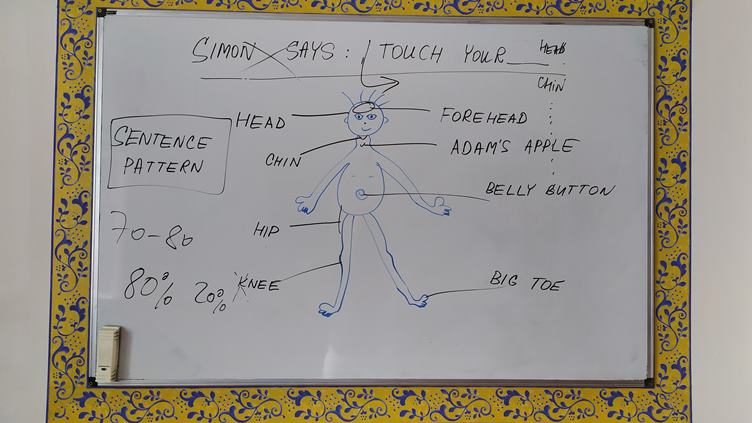 SIMON SAYS: TOUCH YOUR___ HEAD
CHIN
HEAD
FOREHEAD
SENTENCE
PATTERN
CHIN
ADAM'S APPLE
BELLY BUTTON
70-80
HIP
80% 20%
KNEE
BIG TOE